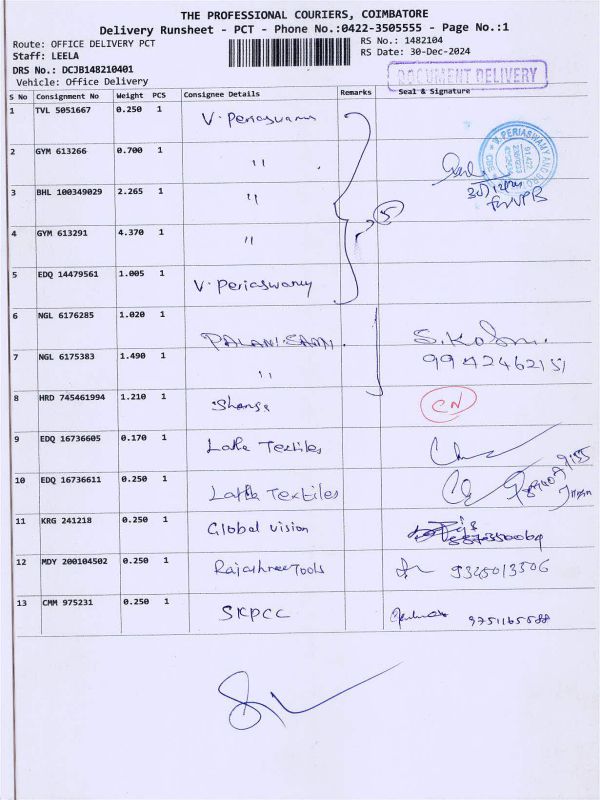 THE PROFESSIONAL COURIERS, COIMBATORE
Delivery Runsheet - PCT - Phone No.:0422-3505555 - Page No.:1
Route: OFFICE DELIVERY PCT
Staff: LEELA
DRS No.: DCJB148210401
Vehicle: Office Delivery
RS No.: 1482104
RS Date: 30-Dec-2024
DOCUMENT DELIVERY
S No Consignment No Weight PCS Consignee Details Remarks Seal & Signature
1 TVL 5051667 0.250 1 V. Periaswamy
2 GYM 613266 0.700 1 "
3 BHL 100349029 2.265 1 "
4 GYM 613291 4.370 1 "
5
5 EDQ 14479561 1.005 1 V. Periaswamy
6 NGL 6176285 1.020 1 PALANISAMI.
7 NGL 6175383 1.490 1 "
8 HRD 745461994 1.210 1 CN
9 EDQ 16736605 0.170 1 Latha Textiles
10 EDQ 16736611 0.250 1 Latha Textiles
11 KRG 241218 0.250 1 Global vision
12 MDY 200104502 0.250 1 Rajashree Tools 9325013506
13 CMM 975231 0.250 1 SKPCC 9751165588